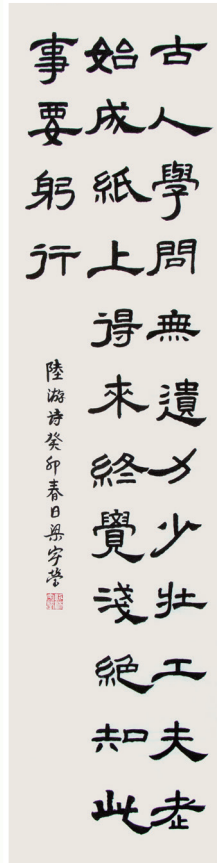 古人學問無遺力少壯工夫老
始成紙上得來終覺淺絕知此
事要躬行
陸游詩癸卯春日梁宇瑩